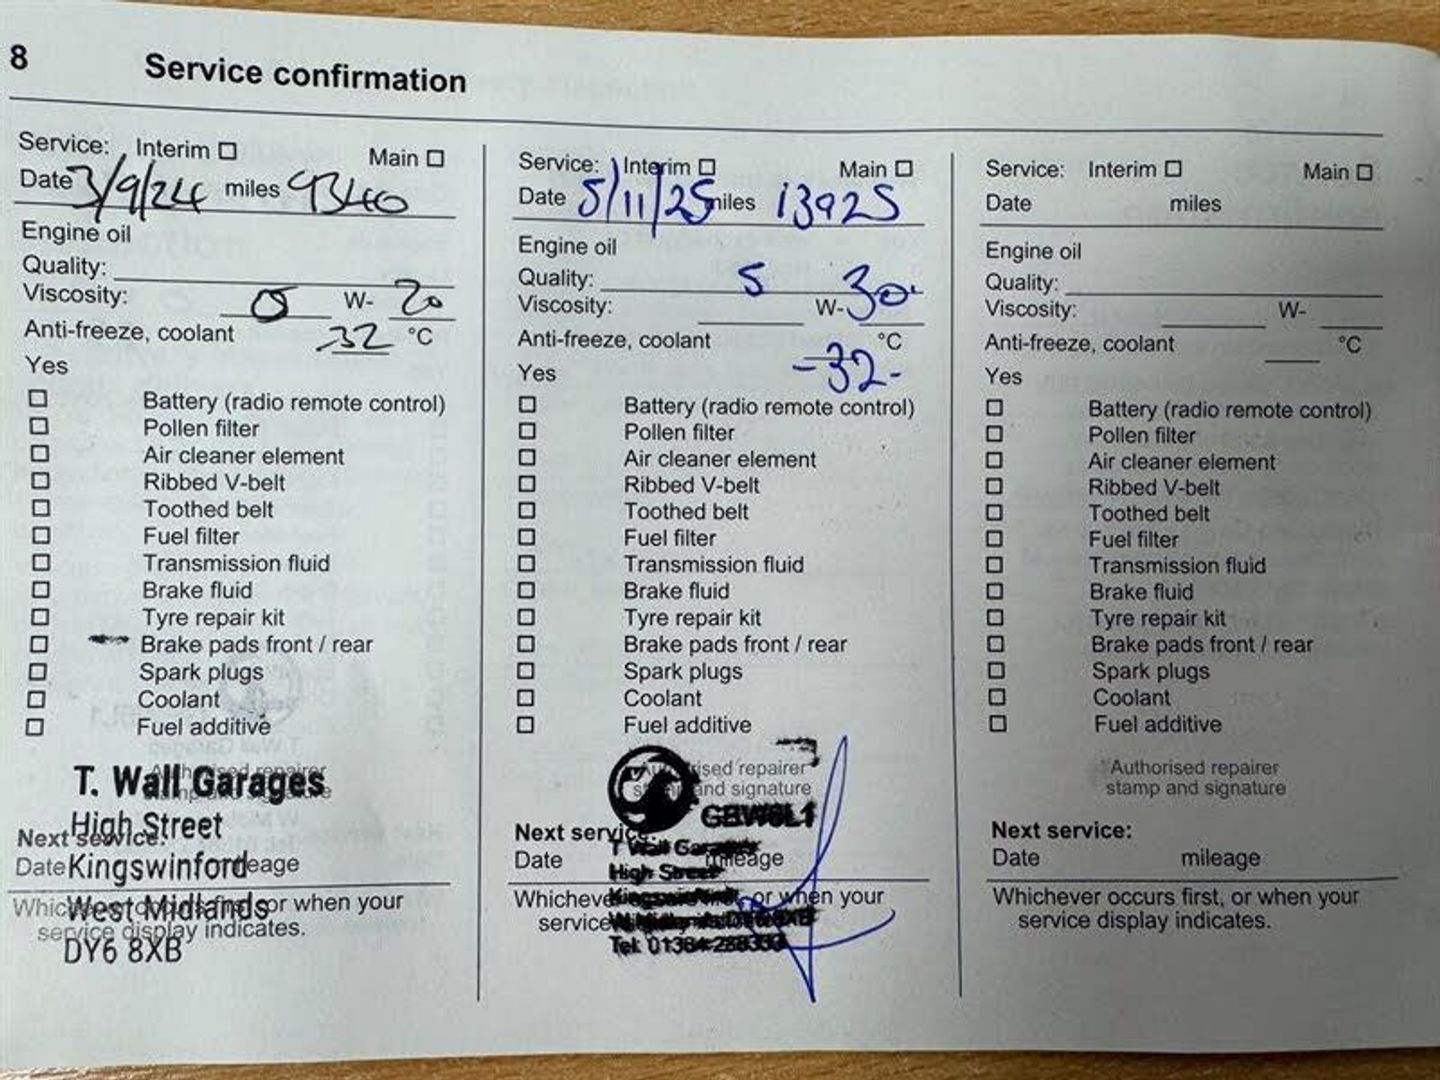 8 Service confirmation
Service: Interim Main
Date 3/9/24 miles 9340
Engine oil
Quality:
Viscosity: 0 W- 20
Anti-freeze, coolant -32 °C
Yes
Battery (radio remote control)
Pollen filter
Air cleaner element
Ribbed V-belt
Toothed belt
Fuel filter
Transmission fluid
Brake fluid
Tyre repair kit
Brake pads front / rear
Spark plugs
Coolant
Fuel additive
Authorised repairer
stamp and signature
T. Wall Garages
High Street
Kingswinford
West Midlands
DY6 8XB
Next service:
Date mileage
Whichever occurs first, or when your
service display indicates.
Service: Interim Main
Date 5/11/25 miles 13925
Engine oil
Quality:
Viscosity: 5 W- 30
Anti-freeze, coolant °C
-32-
Yes
Battery (radio remote control)
Pollen filter
Air cleaner element
Ribbed V-belt
Toothed belt
Fuel filter
Transmission fluid
Brake fluid
Tyre repair kit
Brake pads front / rear
Spark plugs
Coolant
Fuel additive
Authorised repairer
stamp and signature
T Wall Garages
High Street
Kingswinford
W Midlands DY6 8XB
Tel: 01384
Next service:
Date mileage
Whichever or when your
service
Service: Interim Main
Date miles
Engine oil
Quality:
Viscosity: W-
Anti-freeze, coolant °C
Yes
Battery (radio remote control)
Pollen filter
Air cleaner element
Ribbed V-belt
Toothed belt
Fuel filter
Transmission fluid
Brake fluid
Tyre repair kit
Brake pads front / rear
Spark plugs
Coolant
Fuel additive
Authorised repairer
stamp and signature
Next service:
Date mileage
Whichever occurs first, or when your
service display indicates.